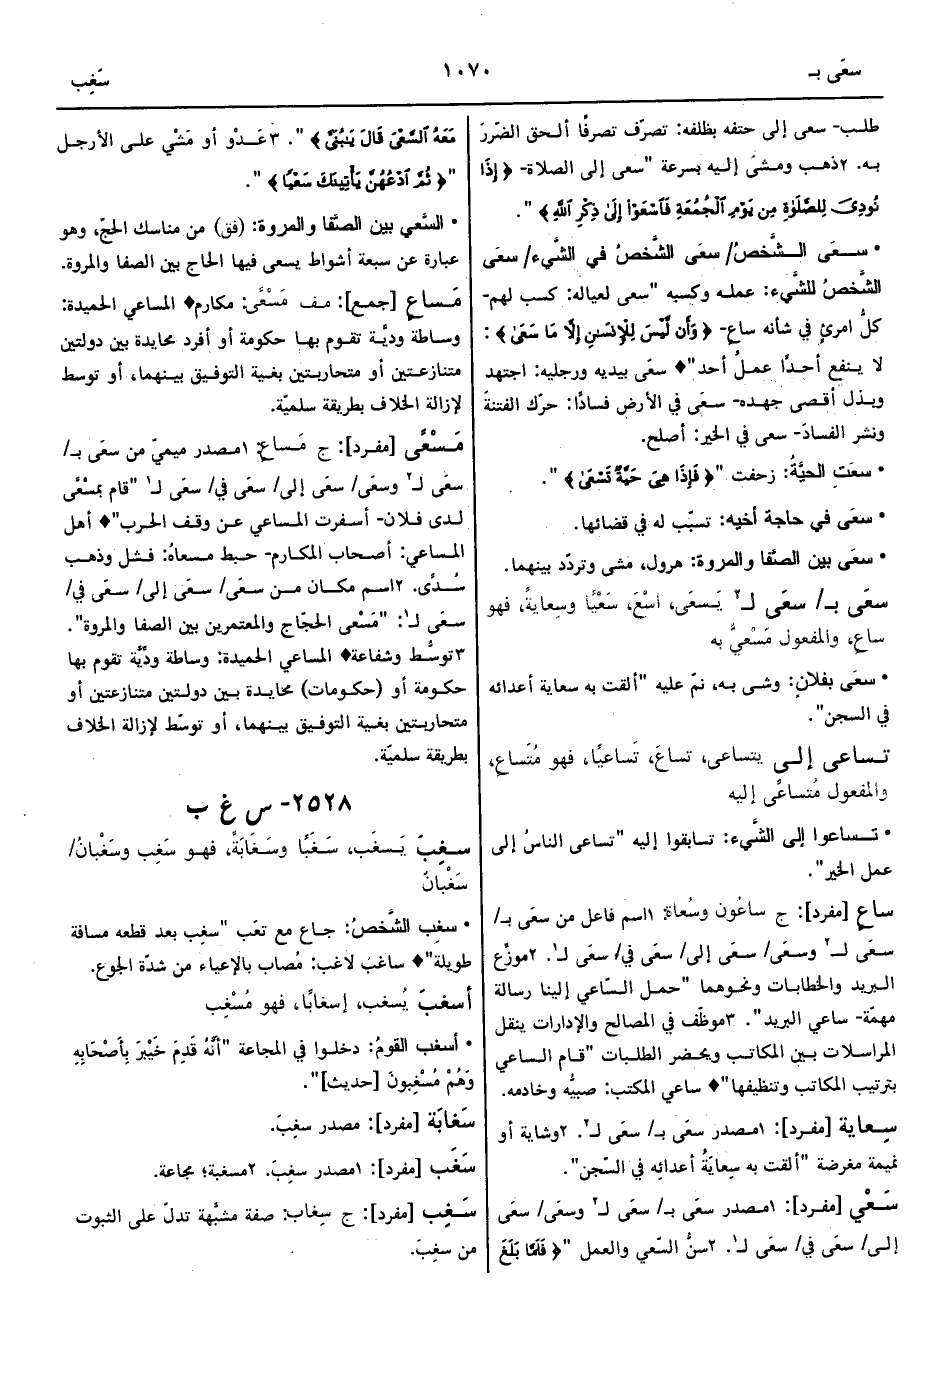 سعَى بـ
١٠٧٠
سَغِب
طلب- سعى إلى حتفه بظلفه: تصرّف تصرفًا ألحق الضّررَ
به. ٢ذهب ومشىٰ إليه بسرعة "سعى إلى الصلاة- ﴿ إِذَا
نُودِيَ لِلصَّلَوٰةِ مِن يَوْمِ ٱلْجُمُعَةِ فَٱسْعَوْا۟ إِلَىٰ ذِكْرِ ٱللَّهِ ﴾ ".
• سـعَى الـشَّخصُ/ سعَى الشَّخصُ في الشَّيء/ سعَى
الشَّخصُ للشَّيء: عمله وكسبه "سعى لعياله: كسب لهم-
كلُّ امرئٍ في شأنه ساعٍ- ﴿ وَأَن لَّيْسَ لِلْإِنسَٰنِ إِلَّا مَا سَعَىٰ ﴾ :
لا ينفع أحدًا عملُ أحد"♦ سعَى بيديه ورجليه: اجتهد
وبذل أقصى جهده- سعَى في الأرض فسادًا: حرّك الفتنةَ
ونشر الفسادَ- سعى في الخير: أصلح.
• سعَتِ الحيَّةُ: زحفت "﴿ فَإِذَا هِىَ حَيَّةٌ تَسْعَىٰ ﴾ ".
• سعَى في حاجة أخيه: تسبّب له في قضائها.
• سعَى بين الصَّفا والمروة: هرول، مشى وتردّد بينهما.
سعَى بـ/ سعَى لـ٢ يَسعَى، اسْعَ، سَعْيًا وسِعايةً، فهو
ساعٍ، والمفعول مَسْعيٌّ به
• سعَى بفلانٍ: وشى به، نمّ عليه "ألقت به سعاية أعدائه
في السجن".
تساعى إلـى يتساعى، تساعَ، تَساعيًا، فهو مُتَساعٍ،
والمفعول مُتساعًى إليه
• تـساعوا إلى الشَّيء: تسابقوا إليه "تساعى الناسُ إلى
عمل الخير".
ساعٍ [مفرد]: ج ساعُون وسُعاة: ١اسم فاعل من سعَى بـ/
سعَى لـ٢ وسعَى/ سعَى إلى/ سعَى في/ سعَى لـ١. ٢موزِّع
البريد والخطابات ونحوهما "حمل السّاعي إلينا رسالة
مهمّة- ساعي البريد". ٣موظّف في المصالح والإدارات ينقل
المراسلات بين المكاتب ويحضر الطلبات "قام الساعي
بترتيب المكاتب وتنظيفها"♦ ساعي المكتب: صبيُّه وخادمه.
سِعاية [مفرد]: ١مصدر سعَى بـ/ سعَى لـ٢. ٢وشاية أو
نميمة مغرضة "ألقت به سِعايَةُ أعدائِه في السِّجن".
سَعْي [مفرد]: ١مصدر سعَى بـ/ سعَى لـ٢ وسعَى/ سعَى
إلى/ سعَى في/ سعَى لـ١. ٢سنُّ السَّعي والعمل "﴿ فَلَمَّا بَلَغَ
مَعَهُ ٱلسَّعْىَ قَالَ يَٰبُنَىَّ ﴾ ". ٣عَدْو أو مَشْي على الأرجل
"﴿ ثُمَّ ٱدْعُهُنَّ يَأْتِينَكَ سَعْيًا ﴾ ".
• السَّعي بين الصَّفا والمروة: (فق) من مناسك الحجّ، وهو
عبارة عن سبعة أشواط يسعى فيها الحاج بين الصفا والمروة.
مَساعٍ [جمع]: مف مَسْعًى: مكارم♦ المساعي الحميدة:
وساطة وديَّة تقوم بها حكومة أو أفرد محايدة بين دولتين
متنازعتين أو متحاربتين بغية التوفيق بينهما، أو توسط
لإزالة الخلاف بطريقة سلميّة.
مَسْعًى [مفرد]: ج مَساعٍ: ١مصدر ميميّ من سعَى بـ/
سعَى لـ٢ وسعَى/ سعَى إلى/ سعَى في/ سعَى لـ١ "قام بمَسْعًى
لدى فلان- أسفرت المساعي عن وقف الحرب"♦ أهل
المساعي: أصحاب المكارم- حبط مسعاهُ: فشل وذهب
سُدًى. ٢اسم مكان من سعَى/ سعَى إلى/ سعَى في/
سعَى لـ١: "مَسْعى الحجّاج والمعتمرين بين الصفا والمروة".
٣توسُّط وشفاعة♦ المساعي الحميدة: وساطة ودِّيَّة تقوم بها
حكومة أو (حكومات) محايدة بين دولتين متنازعتين أو
متحاربتين بغية التوفيق بينهما، أو توسّط لإزالة الخلاف
بطريقة سلميّة.
٢٥٢٨- س غ ب
سغِبَ يَسغَب، سَغَبًا وسَغَابَةً، فهو سَغِب وسَغْبانُ/
سَغْبانٌ
• سغِب الشَّخصُ: جاع مع تعَب "سغِب بعد قطعه مسافة
طويلة"♦ ساغبٌ لاغب: مُصاب بالإعياء من شدّة الجوع.
أسغبَ يُسغب، إسغابًا، فهو مُسْغِب
• أسغب القومُ: دخلوا في المجاعة "أَنَّهُ قَدِمَ خَيْبَرَ بِأَصْحَابِهِ
وَهُمْ مُسْغِبونَ [حديث]".
سَغابَة [مفرد]: مصدر سغِبَ.
سَغَب [مفرد]: ١مصدر سغِبَ. ٢مسغبة؛ مجاعة.
سَغِب [مفرد]: ج سِغاب: صفة مشبَّهة تدلّ على الثبوت
من سغِبَ.